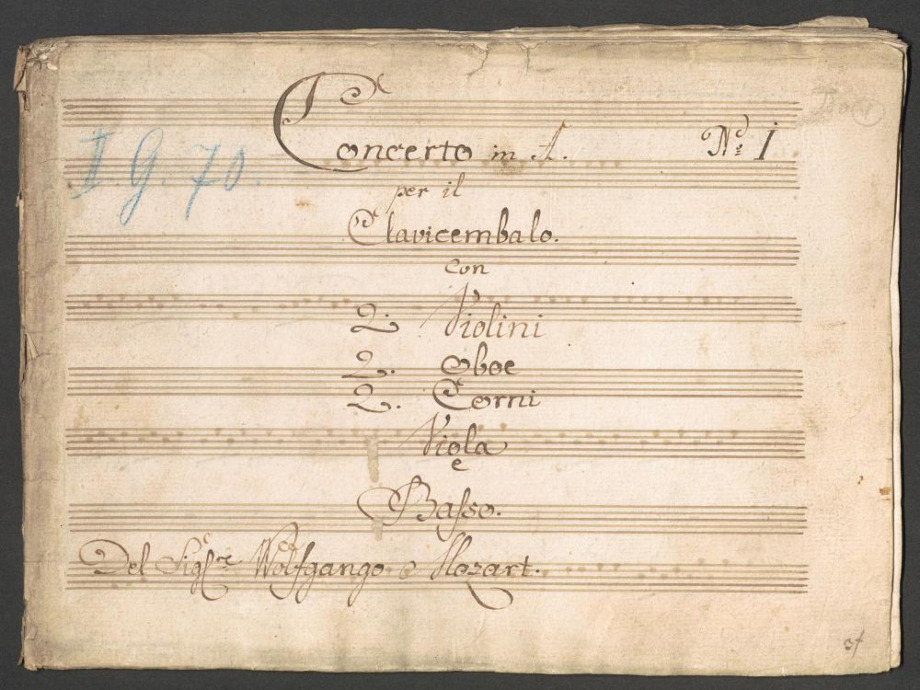 Concerto in A. Nº 1
II. G. 70.
per il
Clavicembalo.
con
2. Violini
2. Oboe
2. Corni
Viola
e
Basso.
Del Sigre Wolfgango Mozart.